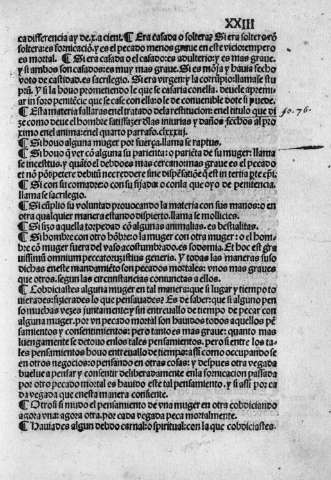 XXIII
ca differencia ay de.x.a cient. ¶ Era casada o soltera? Si era soltero cõ
soltera: es fornicaciõ.y es el pecado menos graue en este vicio:empero
es mortal. ¶ Si era casada o el casado:es adulterio:y es mas graue.
y si ambos son casados:es muy mas graue. Si es mõja y hauia fecho
voto de castidad.es sacrilegio. Si era virgen:y la corrũpio:llamase stu
pru3. Y si la houo prometiendo le que se casaria con ella. deue le apremi-
ar in foro penitẽcie que se case con ella:o le de conuenible dote si puede.
¶ Esta materia fallaras en el tratado dela restitucion:en el titulo que di
ze como deue el hombre satisfazer dlas iniurias y daños fechos al pro
ximo en el anima:en el quarto parrafo.clxxxij. fo. 76.
¶ Si houo alguna muger por fuerça.llama se raptus.
¶ Si houo q̃ ver cõ alguna su parienta:o pariẽta de su muger: llama
se incestus.y quãto el debdo es mas cercano:mas graue es el pecado
¶ Si con su comadre:o con su fijada:o con la que oyo de penitencia.
llama se sacrilegio.
¶ Si cũplio su voluntad prouocando la materia con sus manos:o en
otra qualquier manera estando dispierto.llama se mollicies.
¶ Si fizo aquella torpedad cõ algunas animalias.es bestialitas.
¶ Si hombre con otro hõbre: o la muger con otra muger: o el hom
bre cõ muger fuera del vaso acostumbrado.es sodomia. Et hoc est gra
uissimũ omnium peccatorũ istius generis. Y todas las maneras suso
dichas en este mandamiẽto son pecados mortales: vnos mas graues
que otros.segun las circunstancias conjunctas a ellos.
¶ Cobdiciastes alguna muger en tal manera:que si lugar y tiempo to
uierades:fizierades lo que pensauades? Es de saber:que si alguno pen
so muchas vezes juntamente:y sin entreuallo de tiempo de pecar con
alguna muger.por vn pecado mortal son hauidos todos aquellos pẽ
samientos y consentimientos: pero tanto es mas graue: quanto mas
luengamente se detouo en los tales pensamientos. pero si entre los ta-
les pensamientos houo entreuallo de tiempo: assi como occupando se
en otros negocios:o pensando en otras cosas: y despues otra vegada
buelue a pensar y consentir deliberadamente en la fornicacion passada
por otro pecado mortal es hauido este tal pensamiento. y si assi por ca
da vegada que en esta manera consiente.
¶ Otrosi si mudo el pensamiento de vna muger en otra cobdiciando
agora vna: agora otra.por cada vegada peca mortalmente.
¶ Hauiades algun debdo carnal:o spiritual:con la que cobdiciastes.